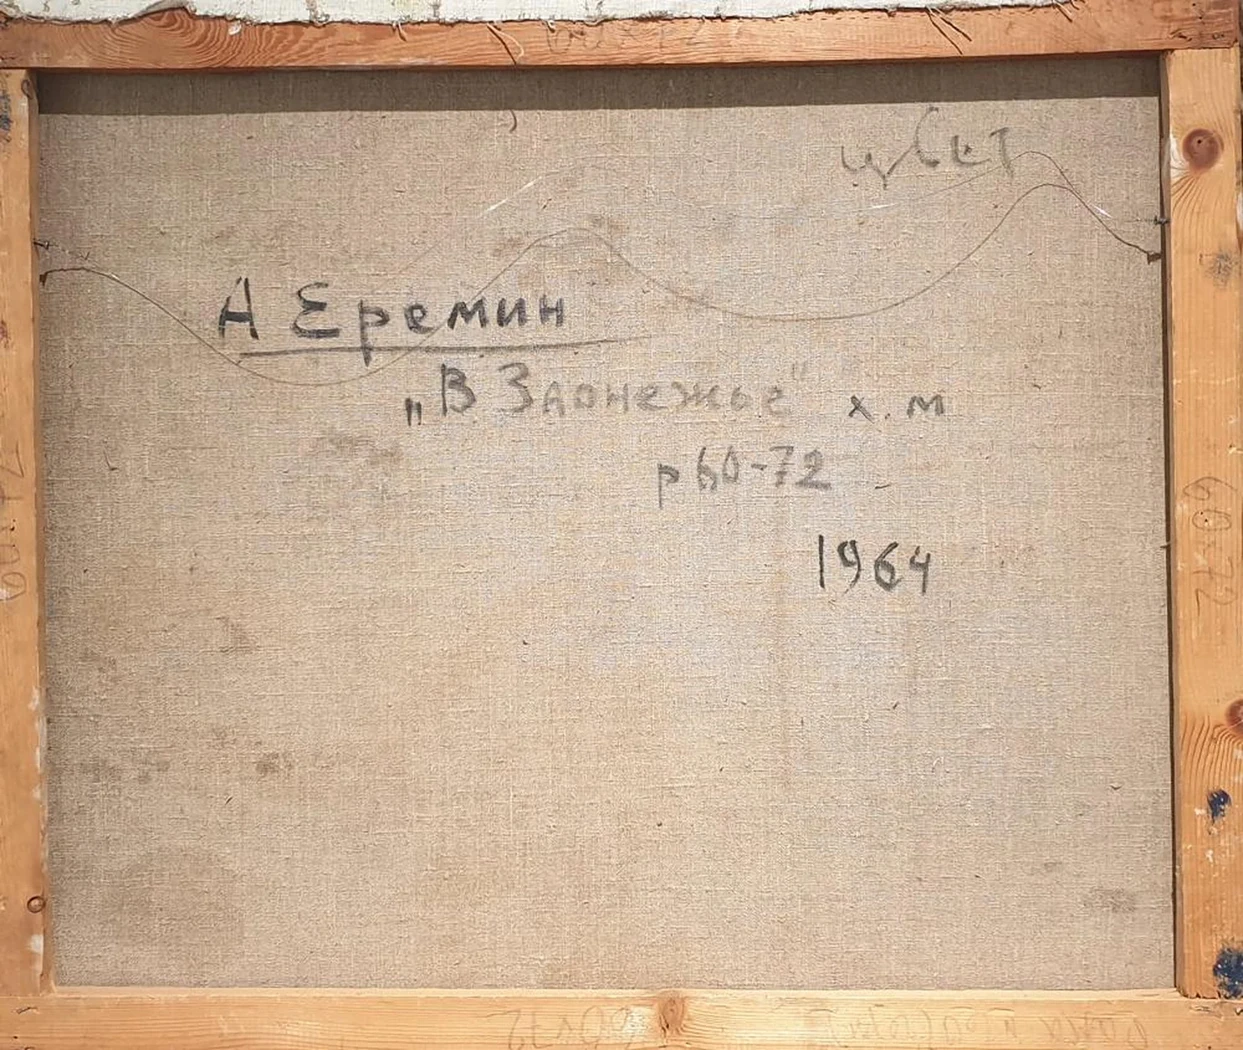 60x72
цвет
А Еремин
„В Заонежье" х.м
р 60-72
1964
60x72
60x72
60x72